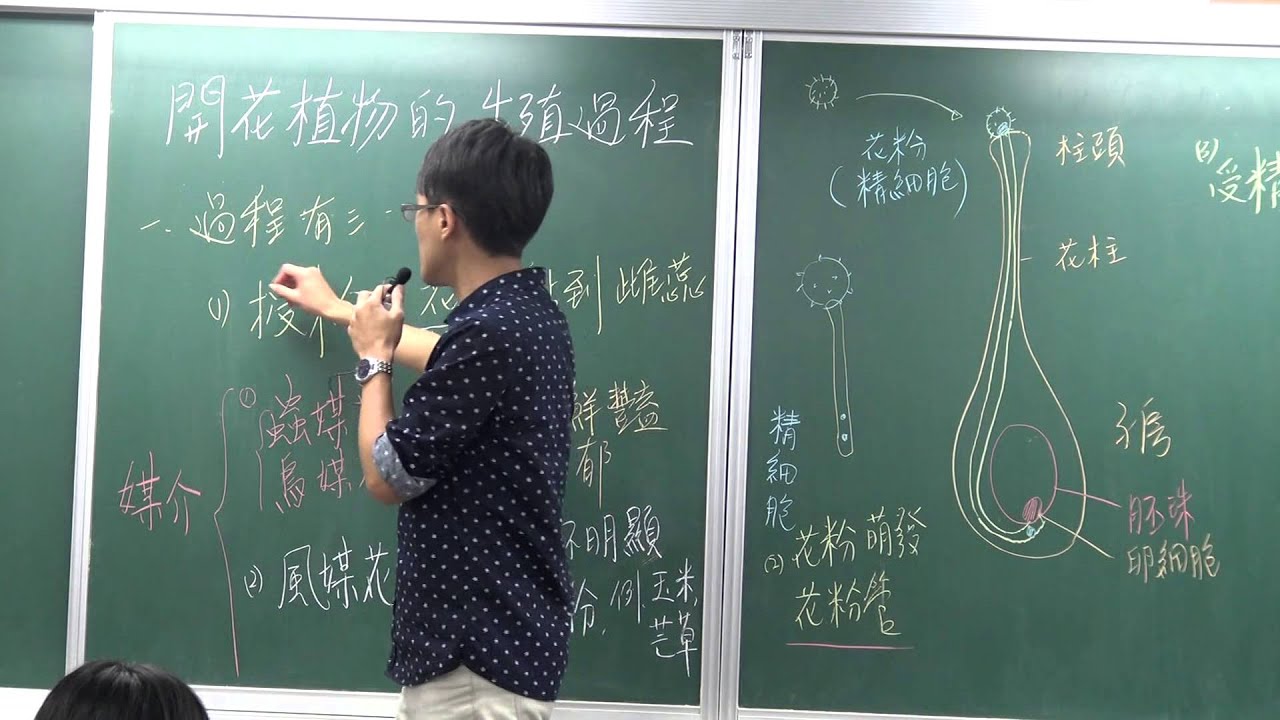 開花植物的生殖過程
一.過程有三
(1) 授粉 花 到雌蕊
媒介
① 蟲媒 鮮豔
鳥媒 郁
(2) 風媒花 不明顯
粉,例.玉米,
芒草
花粉
(精細胞)
精細胞
(2) 花粉萌發
花粉管
柱頭
花柱
子房
胚珠
卵細胞
(3)
受精